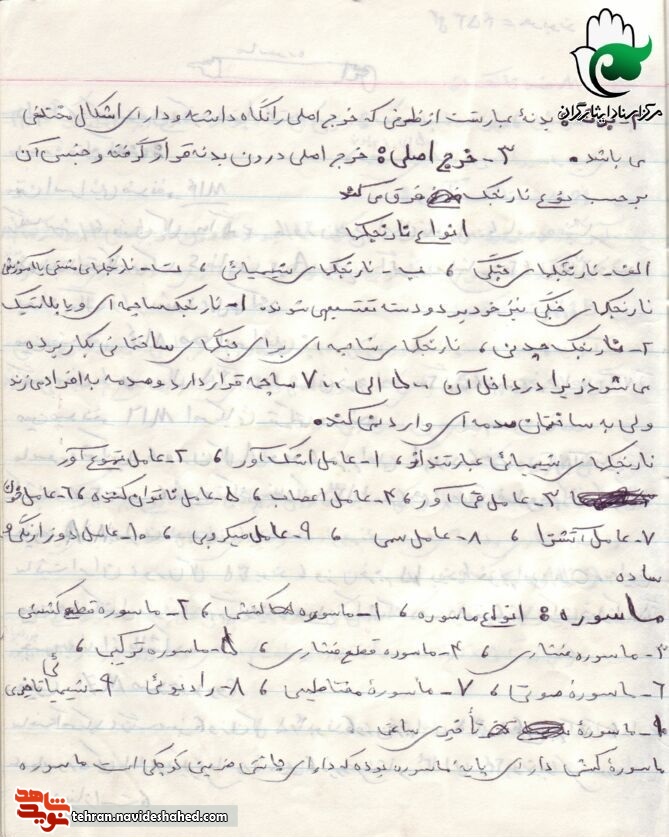 مرکز اسناد ایثارگران
۲- بدنه بدنهٔ عبارتست از ظرفی که خرج اصلی را نگاه داشته و دارای اشکال مختلفی
می باشد. ۳- خرج اصلی: خرج اصلی درون بدنه قرار گرفته و جنس آن
بر حسب نوع نارنجک فرق می کند
انواع نارنجکها
الف- نارنجکهای جنگی، ب- نارنجکهای شیمیائی، ت- نارنجکهای مشقی یا آموزشی
نارنجکهای جنگی نیز خود بر دو دسته تقسیم می شوند. ۱- نارنجک ساچمه ای و یا پلاستیک
۲- نارنجک چدنی، نارنجکهای ساچمه ای برای جنگهای ساختمانی بکار برده
می شود زیرا در داخل آن الی ۷۰۰ ساچمه قرار دارد و صدمه به افراد می زند
ولی به ساختمان صدمه ای وارد نمی کند.
نارنجکهای شیمیائی عبارتند از، ۱- عامل اشک آور، ۲- عامل تهوع آور
۳- عامل قی آور، ۴- عامل اعصاب، ۵- عامل ناتوان کننده، ۶- عامل خون
۷- عامل آتشزا، ۸- عامل سمی، ۹- عامل میکروبی، ۱۰- عامل دودزا رنگی و
ساده
ماسوره: انواع ماسوره، ۱- ماسوره کششی، ۲- ماسوره قطع کششی
۳- ماسوره فشاری، ۴- ماسوره قطع فشاری، ۵- ماسوره ترکیبی،
۶- ماسورهٔ صوتی، ۷- ماسورهٔ مغناطیسی، ۸- رادیوئی ۹- شیمیائی تاخیری
۱۰- ماسورهٔ تأخیری ساعتی
ماسورهٔ کششی دارای پایهٔ ماسوره بوده که دارای چاشنی ضربتی کوچکی است ماسوره
شاهد
نوید
tehran.navideshahed.com